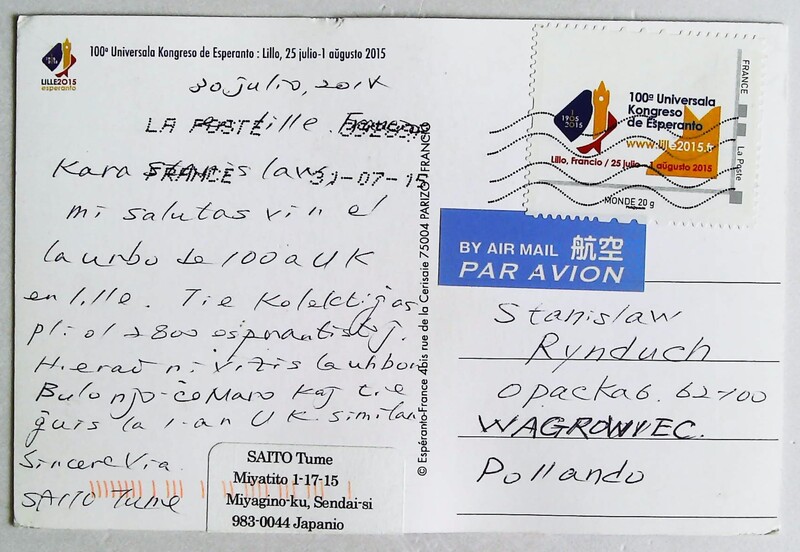 100ª Universala Kongreso de Esperanto : Lillo, 25 julio-1 aŭgusto 2015
LILLE2015
esperanto
30 julio, 201
LA POSTE
Lille
FRANCE
31-07-15
Kara Stanislaw
mi salutas vin el
la urbo de 100a UK
en lille. Tie kolektiĝas
pli ol 2800 esperantistoj.
Hieraŭ ni vizitis la urbon
Bulonjo-ĉeMaro kaj tie
ĝuis la 1-an UK similan
Sincere Via
SAITO Tume
SAITO Tume
Miyatito 1-17-15
Miyagino-ku, Sendai-si
983-0044 Japanio
© Espéranto-France 4bis rue de la Cerisaie 75004 PARIZO (FRANCIO
100ª Universala
Kongreso
de Esperanto
1905
2015
www.lille2015.fr
Lillo, Francio / 25 julio - 1 aŭgusto 2015
MONDE 20 g
FRANCE
La Poste
BY AIR MAIL 航空
PAR AVION
Stanislaw
Rynduch
Opacka 6. 62-100
WAGROWIEC.
Pollando